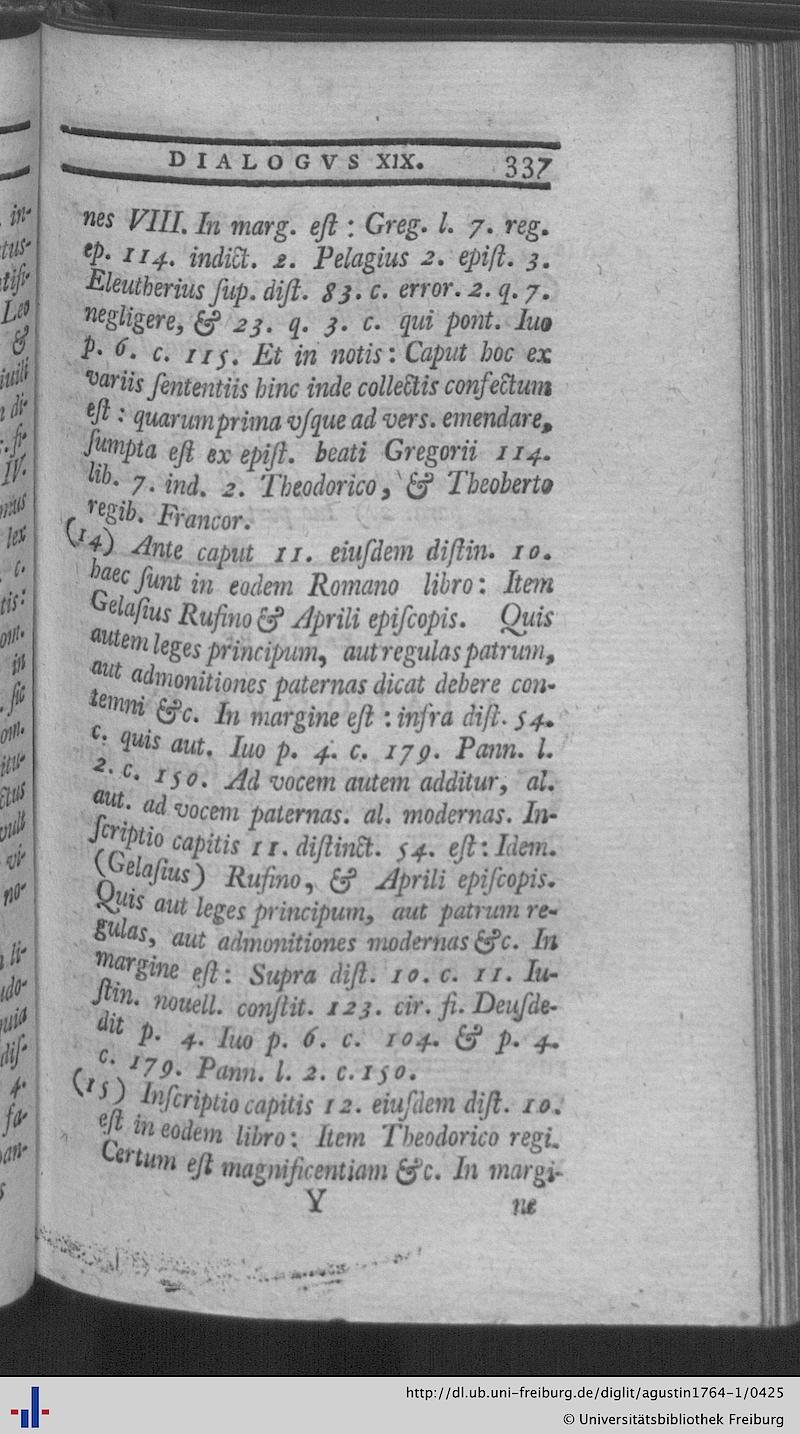 DIALOGVS XIX. 337
nes VIII. In marg. eſt : Greg. l. 7. reg.
ep. 114. indict. 2. Pelagius 2. epiſt. 3.
Eleutherius ſup. diſt. 83. c. error. 2. q. 7.
negligere, & 23. q. 3. c. qui pont. Iuo
p. 6. c. 115. Et in notis : Caput hoc ex
variis ſententiis hinc inde collectis confectum
eſt : quarum prima vſque ad vers. emendare,
ſumpta eſt ex epiſt. beati Gregorii 114.
lib. 7. ind. 2. Theodorico, & Theoberto
regib. Francor.
(14) Ante caput 11. eiuſdem diſtin. 10.
haec ſunt in eodem Romano libro : Item
Gelaſius Rufino & Aprili epiſcopis. Quis
autem leges principum, aut regulas patrum,
aut admonitiones paternas dicat debere con-
temni &c. In margine eſt : infra diſt. 54.
c. quis aut. Iuo p. 4. c. 179. Pann. l.
2. c. 150. Ad vocem autem additur, al.
aut. ad vocem paternas. al. modernas. In-
ſcriptio capitis 11. diſtinct. 54. eſt : Idem.
(Gelaſius) Rufino, & Aprili epiſcopis.
Quis aut leges principum, aut patrum re-
gulas, aut admonitiones modernas &c. In
margine eſt : Supra diſt. 10. c. 11. Iu-
ſtin. nouell. conſtit. 123. cir. fi. Deuſde-
dit p. 4. Iuo p. 6. c. 104. & p. 4.
c. 179. Pann. l. 2. c. 150.
(15) Inſcriptio capitis 12. eiuſdem diſt. 10.
eſt in eodem libro : Item Theodorico regi.
Certum eſt magnificentiam &c. In margi-
Y ne
http://dl.ub.uni-freiburg.de/diglit/agustin1764-1/0425
© Universitätsbibliothek Freiburg